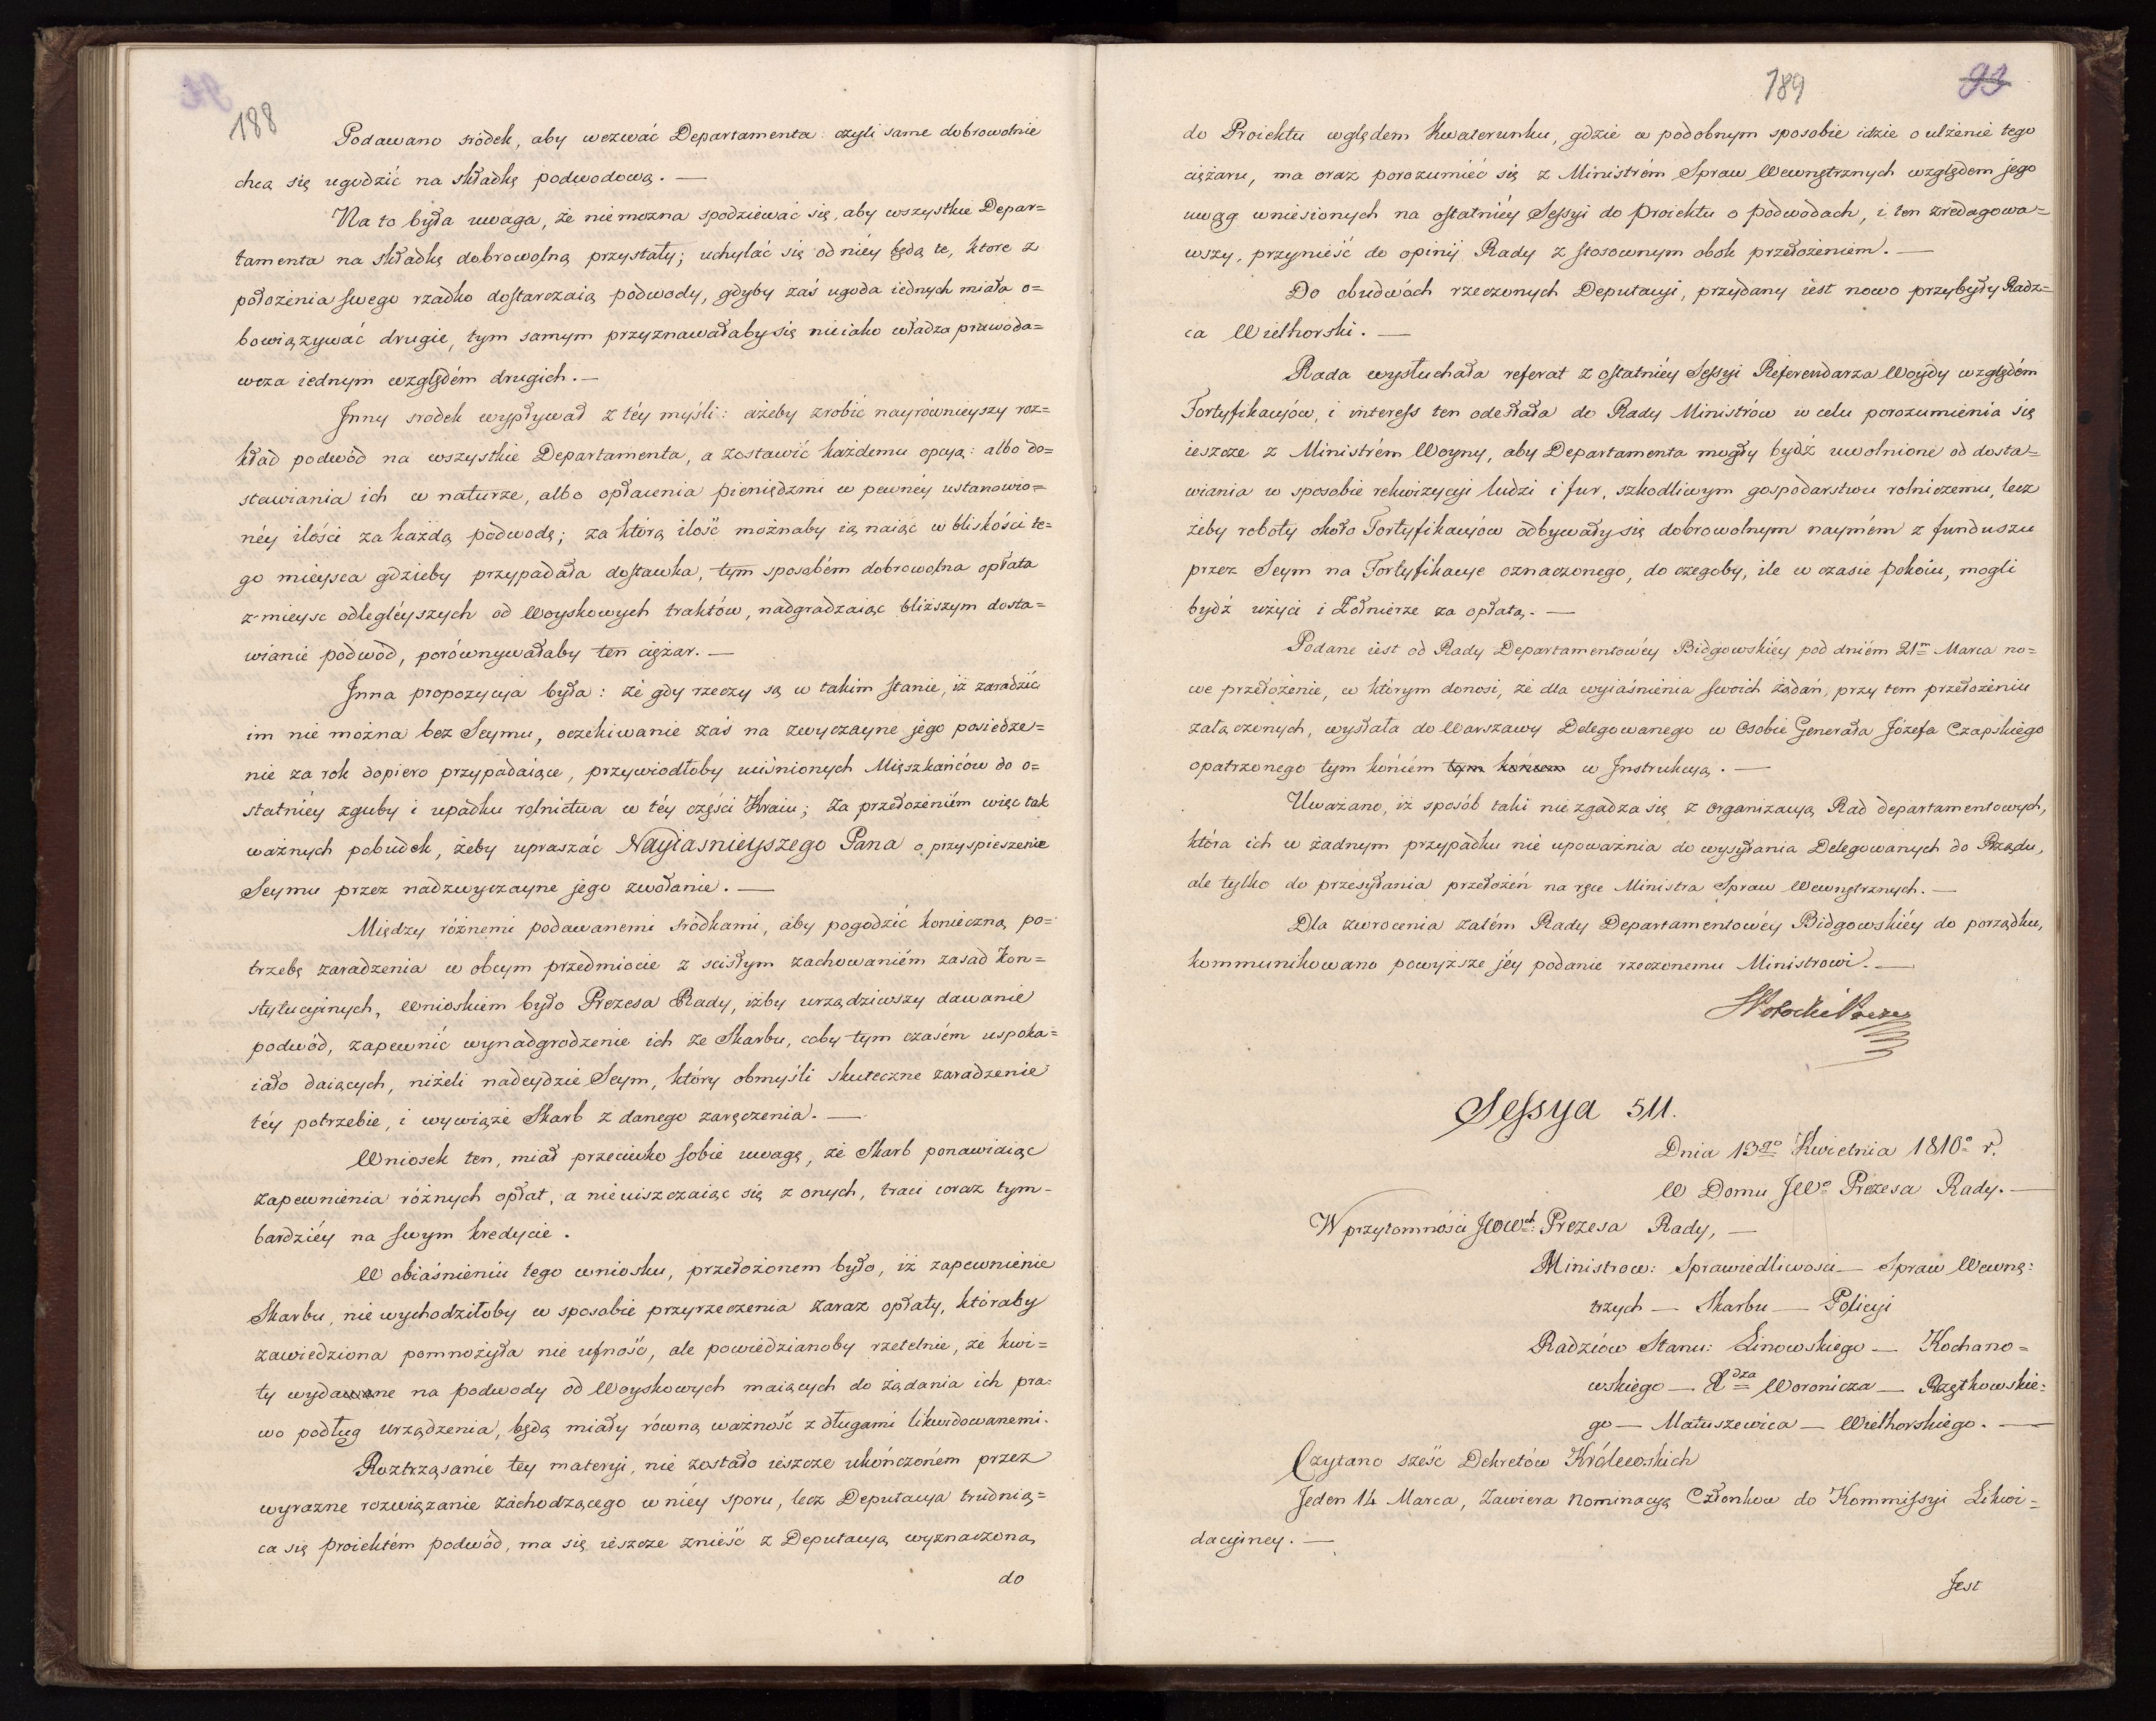 188
Podawano srodek, aby wezwać Departamenta: czyli same dobrowolnie
chcą się ugodzić na składkę podwodową. —
Na to była uwaga, że niemożna spodziewać się, aby wszystkie Depar=
tamenta na składkę dobrowolną przystały; uchylać się od niéy będą te, ktore z
położenia swego rzadko dostarczaią podwody, gdyby zaś ugoda iednych miała o=
bowiązywać drugie, tym samym przyznawałaby się nieiako władza prawoda=
wcza iednym względém drugich. —
Jnny srodek wypływał z téy myśli: ażeby zrobić nayrównieyszy roz=
kład podwód na wszystkie Departamenta, a zostawić każdemu opcyą: albo do=
stawiania ich w naturze, albo opłacenia pieniędzmi w pewnéy ustanowio=
néy ilości za każdą podwodę; za którą ilość możnaby ią naiąć w bliskości te=
go mieysca gdzieby przypadała dostawka, tym sposobém dobrowolna opłata
z mieysc odlegléyszych od Woyskowych traktów, nadgradzaiąc bliższym dosta=
wianie podwod, porównywałaby ten ciężar. —
Jnna propozycya była: że gdy rzeczy są w takim stanie, iż zaradzić
im nie można bez Seymu, oczekiwanie zaś na zwyczayne jego posiedze=
nie za rok dopiero przypadaiące, przywiodłoby uciśnionych Mięszkańców do o=
statniéy zguby i upadku rolnictwa w téy części Kraiu; za przełożeniém więc tak
ważnych pobudek, żeby upraszać Nayiasnieyszego Pana o przyspieszenie
Seymu przez nadzwyczayne jego zwołanie. —
Między różnemi podawanemi srodkami, aby pogodzić konieczną po=
trzebę zaradzenia w obcym przedmiocie z scisłym zachowaniém zasad Kon=
stytucyinych, Wnioskiem było Prezesa Rady, iżby urządziwszy dawanie
podwód, zapewnić wynadgrodzenie ich ze Skarbu, coby tym czasém uspoka=
iało daiących, niżeli nadeydzie Seym, który obmyśli skuteczne zaradzenie
téy potrzebie, i wywiąże Skarb z danego zaręczenia. —
Wniosek ten, miał przeciwko sobie uwagę, że Skarb ponawiaiąc
zapewnienia różnych opłat, a nieuiszczaiąc się z onych, traci coraz tym-
bardziéy na swym kredycie.
W obiaśnieniu tego wniosku, przełożonem było, iż zapewnienie
Skarbu, nie wychodziłoby w sposobie przyrzeczenia zaraz opłaty, któraby
zawiedziona pomnożyła nie ufność, ale powiedzianoby rzetelnie, że kwi=
ty wydawane na podwody od Woyskowych maiących do żądania ich pra=
wo podług urządzenia, będą miały równą ważność z długami likwidowanemi.
Roztrząsanie tey materyi, nie zostało ieszcze ukończoném przez
wyrazne rozwiązanie zachodzącego w niéy sporu, lecz Deputacya trudnią=
ca się proiektém podwód, ma się ieszcze znieść z Deputacyą wyznaczoną
do
189
93
do Proiektu względem Kwaterunku, gdzie w podobnym sposobie idzie o ulżenie tego
ciężaru, ma oraz porozumieć się z Ministrém Spraw Wewnętrznych względem jego
uwag wniesionych na ostatniéy Sessyi do proiektu o podwodach, i ten zredagowa=
wszy, przynieść do opinij Rady z stosownym obok przełożeniem. —
Do obudwóch rzeczonych Deputacyi, przydany iest nowo przybyły Radz=
ca Wielhorski. —
Rada wysłuchała referat z ostatniéy Sessyi Referendarza Woydy względém
Fortyfikacyów, i interess ten odesłała do Rady Ministrów w celu porozumienia się
ieszcze z Ministrém Woyny, aby Departamenta mogły bydź uwolnione od dosta=
wiania w sposobie rekwizycyi ludzi i fur, szkodliwym gospodarstwu rolniczemu, lecz
żeby roboty około Fortyfikacyów odbywały się dobrowolnym naymém z funduszu
przez Seym na Fortyfikacye oznaczonego, do czegoby, ile w czasie pokoiu, mogli
bydź użyci i Żołnierze za opłatą. —
Podane iest od Rady Departamentowéy Bidgowskiéy pod dniém 21m Marca no=
we przełożenie, w którym donosi, że dla wyiaśnienia swoich żądań, przy tem przełożeniu
załączonych, wysłała do Warszawy Delegowanego w Osobie Generała Józefa Czapskiego
opatrzonego tym końcém tym końcem w Jnstrukcyą. —
Uważano, iż sposób taki nie zgadza się z organizacyą Rad departamentowych,
która ich w żadnym przypadku nie upoważnia do wysyłania Delegowanych do Rządu,
ale tylko do przesyłania przełożeń na ręce Ministra Spraw Wewnętrznych. —
Dla zwrocenia zatém Rady Departamentowéy Bidgowskiéy do porządku,
kommunikowano powyższe jéy podanie rzeczonemu Ministrowi. —
Sessya 511.
Dnia 13go Kwietnia 1810o r.
W Domu JWo Prezesa Rady. —
W przytomności JWWch: Prezesa Rady, —
Ministrow: Sprawiedliwosci — Spraw Wewnę:
trzych — Skarbu — Policyi
Radzców Stanu: Linowskiego — Kochano=
wskiego — Xdza Woronicza — Rzętkowskie=
go — Matuszewica — Wielhorskiego. —
Czytano sześć Dekretów Królewskich
Jeden 14 Marca, Zawiera Nominacyą Członkow do Kommissyi Likwi=
dacyiney. —
Jest